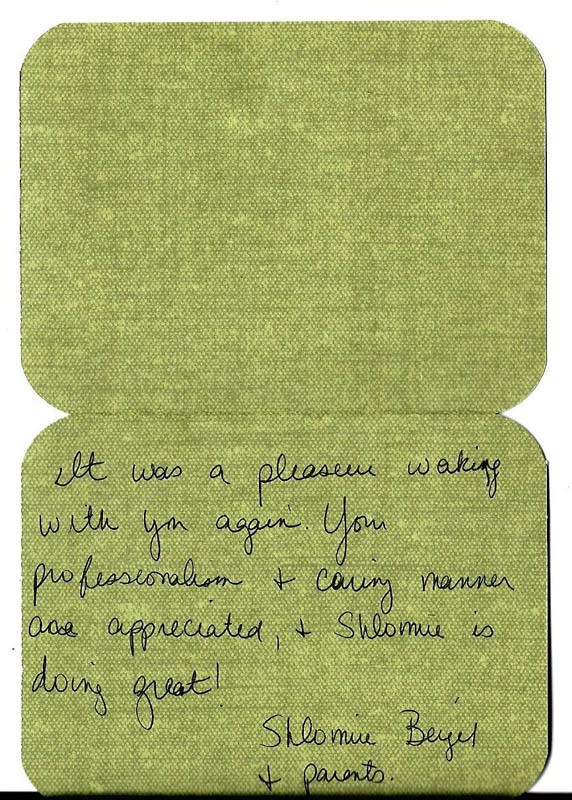 It was a pleasure working
with you again. Your
professionalism + caring manner
are appreciated, + Shlomie is
doing great!
Shlomie
+ parents.